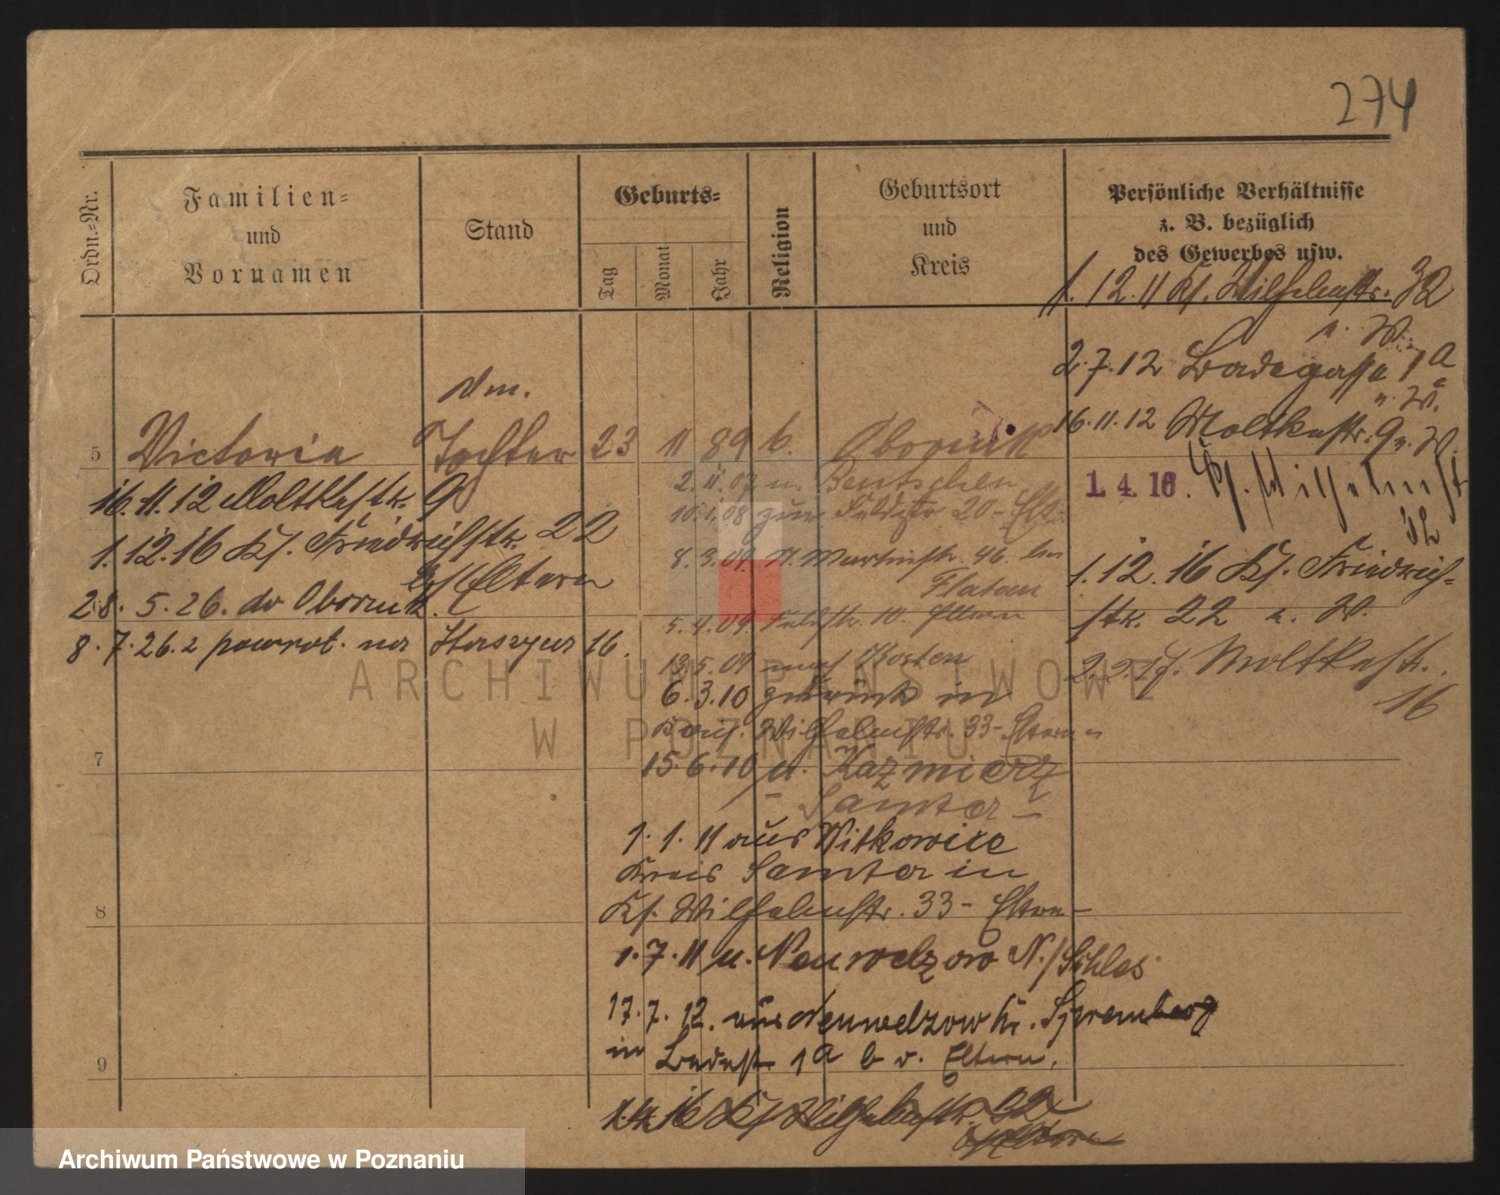 274
Ordn.-Nr.
Familien-
und
Vornamen
Stand
Geburts-
Tag
Monat
Jahr
Religion
Geburtsort
und
Kreis
Persönliche Verhältnisse
z. B. bezüglich
des Gewerbes usw.
1. 12. 11 Kf. Wilhelmstr. 32
2. 7. 12 Badegasse 1a
16. 11. 12 Moltkestr. 9 u. W.
5 Victoria Tochter 23 11 89 k. Obornik
16. 11. 12 Moltkestr. 9
1. 12. 16 Kf. Friedrichstr. 22
b/Eltern
28. 5. 26. do Obornik.
8. 7. 26. z powrot. na 16.
2. 11. 07 n. Bentschen
10. 1. 08 20 - Elt.
8. 3. 09. St. Martinstr. 46. bei
Flatau
5. 4. 09. Feldstr. 10. Eltern
13. 5. 09 nach Kosten
6. 3. 10 zurück in
Wilhelmstr. 33 - Eltern -
15. 6. 10 u. Kazmierz
- Samter -
1. 1. 11 aus Witkowice
Kreis Samter in
Kf. Wilhelmstr. 33 - Eltern -
1. 7. 11 n. Neuwelzow N./Schles.
17. 7. 12. aus Neuwelzow Kr. Spremberg
in Badestr 1a b d. Eltern.
1. 4. 16 Kf Wilhelmstr. 32
b/Eltern
1. 4. 16. Kf. Wilhelmst
32
1. 12. 16 Kf. Friedrich-
str. 22 u. W.
2. 2. 17. Moltkestr.
16
7
8
9
ARCHIWUM PAŃSTWOWE
W POZNANIU
Archiwum Państwowe w Poznaniu